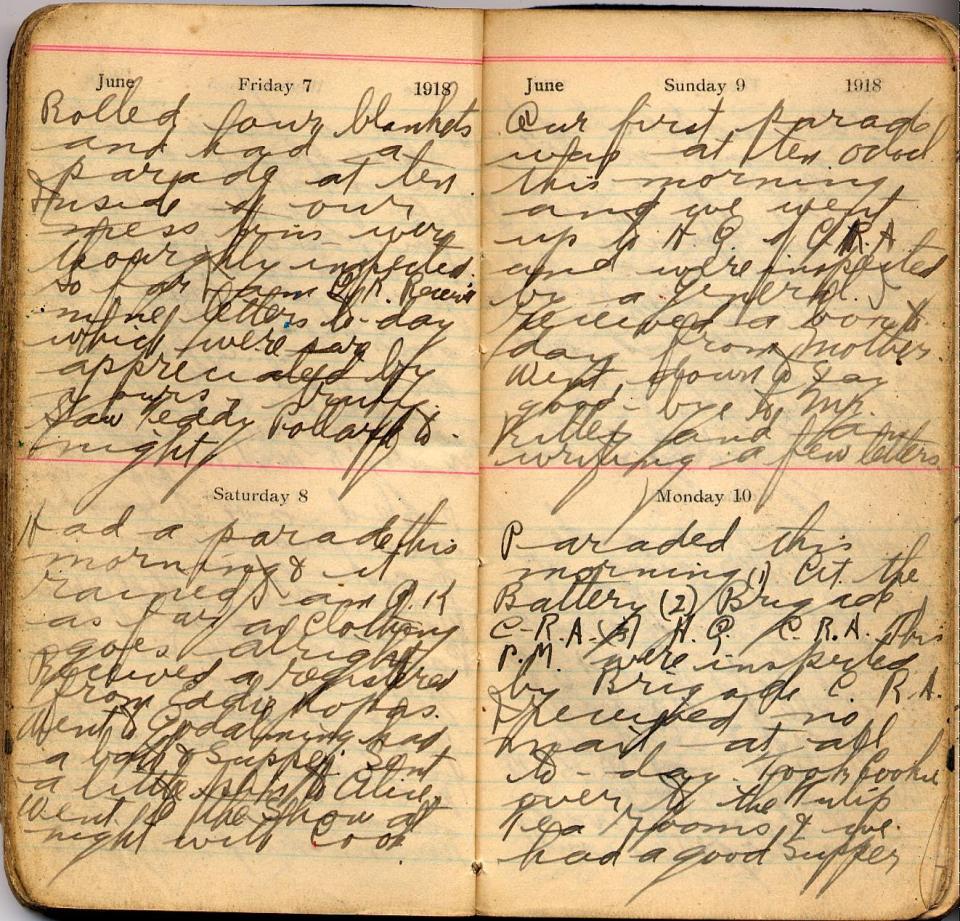 June Friday 7 1918
Rolled four blankets
and had a
parade at ten.
Inside of our
mess tins were
thouroghly inspected.
so far I am O.K. Receiv
nine letters to-day
which were
appreciated by
yours truly.
Saw Teddy Pollard to
night
Saturday 8
Had a parade this
morning & it
rained I am O.K
as far as clothing
goes alright
Received a registered
from Eddie
Went to Godalming had
a bath & Supper sent
a little to Alice.
Went to the Show at
night with Cook
June Sunday 9 1918
Our first parade
was at ten
this morning
and we went
up to H. Q. of C.R.A
and were inspected
by a general. I
received a to
day from Mother.
Went down to say
good-bye to Mr.
and I am
writing a few letters
Monday 10
Paraded this
morning (1) At the
Battery (2) Brigade
C-R.A. (3) H.Q. C.R.A. This
P.M. were inspected
by Brigade C.R.A.
I received no
mail at all
to-day. Took Cookie
over to the Tulip
Tea rooms & we
had a good Supper